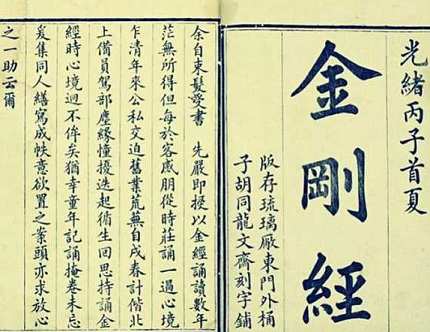 光緒丙子首夏
金剛經
版存琉璃廠東門外桶
子胡同龍文齋刻字鋪
余自束髮受書　先嚴即授以金經誦讀數年
茫無所得但每於客感朋從時莊誦一過心境
乍清年來公私交迫舊業荒蕪自戌春計偕北
上備員駕部塵緣憧擾迭起循生回思持誦金
經時心境迥不侔矣猶幸童年記誦掩卷未忘
爰集同人繕寫成帙意欲置之案頭亦求放心
之一助云爾